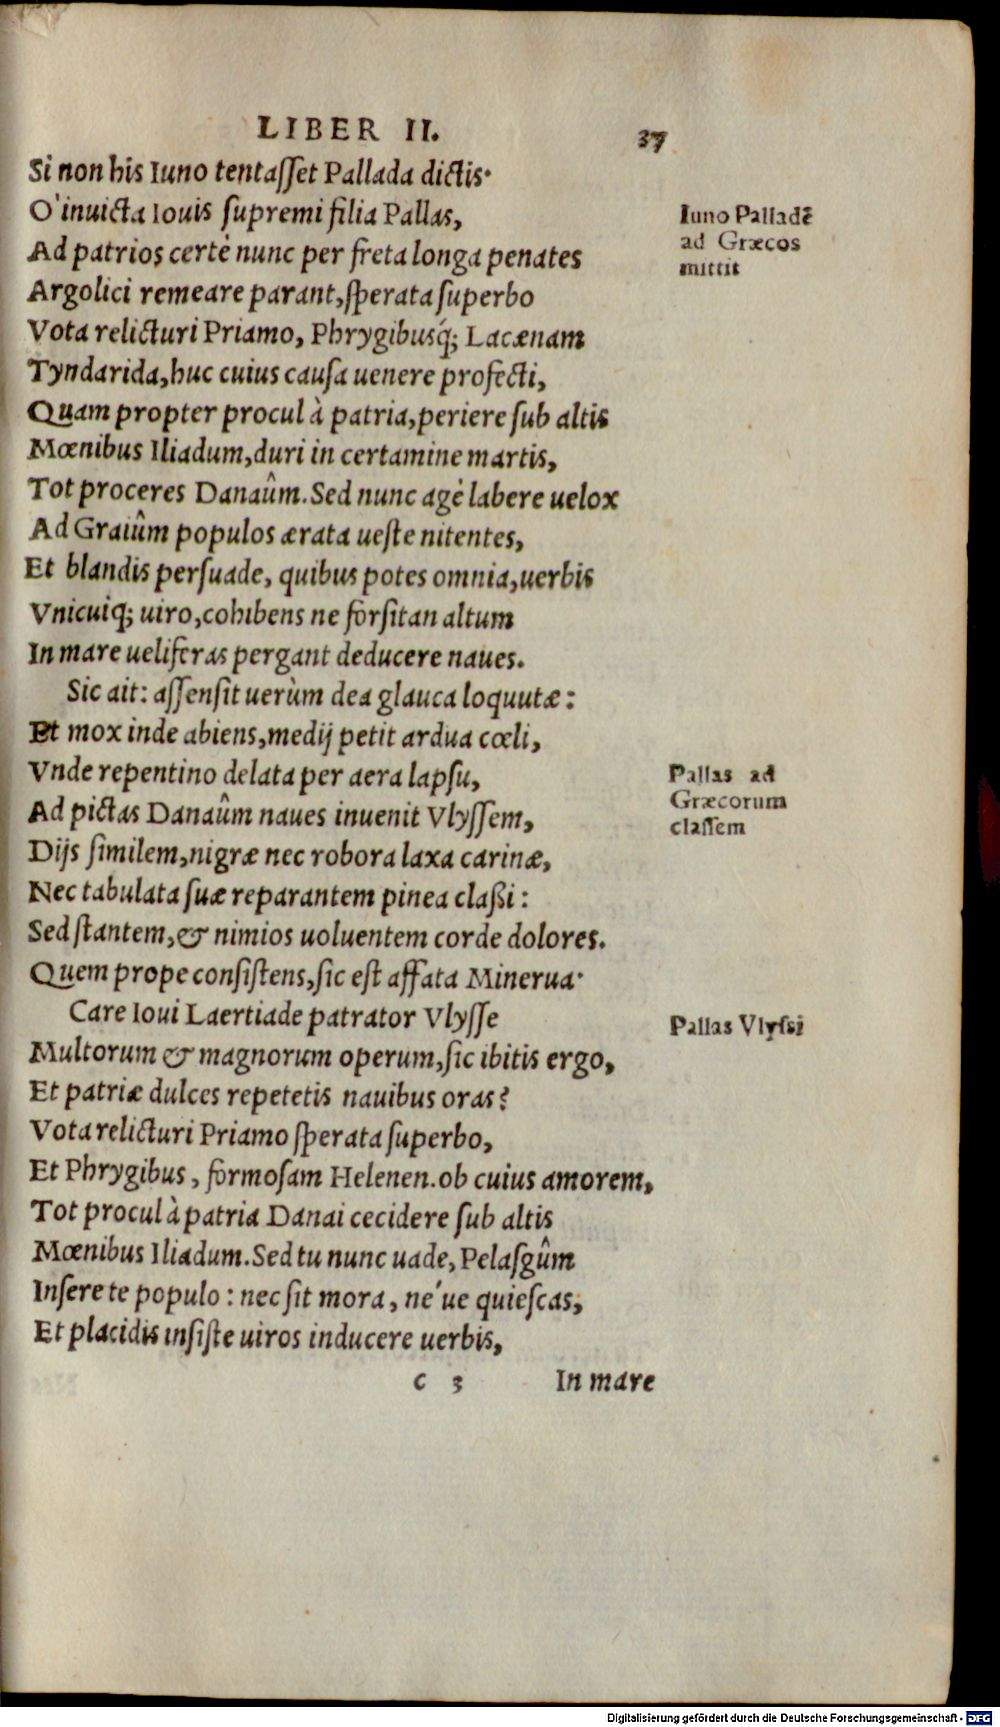 LIBER II. 37
Si non his Iuno tentaſſet Pallada dictis·
O' inuicta Iouis ſupremi filia Pallas,
Iuno Palladē
ad Græcos
mittit
Ad patrios certè nunc per freta longa penates
Argolici remeare parant, ſperata ſuperbo
Vota relicturi Priamo, Phrygibusq́; Lacænam
Tyndarida, huc cuius cauſa uenere profecti,
Quam propter procul à patria, periere ſub altis
Mœnibus Iliadum, duri in certamine martis,
Tot proceres Danaûm. Sed nunc agè labere uelox
Ad Graiûm populos ærata ueſte nitentes,
Et blandis perſuade, quibus potes omnia, uerbis
Vnicuiq; uiro, cohibens ne forſitan altum
In mare ueliferas pergant deducere naues.
Sic ait: aſſenſit uerùm dea glauca loquutæ:
Et mox inde abiens, medij petit ardua cœli,
Vnde repentino delata per aera lapſu,
Pallas ad
Græcorum
claſſem
Ad pictas Danaûm naues inuenit Vlyſſem,
Dijs ſimilem, nigræ nec robora laxa carinæ,
Nec tabulata ſuæ reparantem pinea claßi:
Sed ſtantem, & nimios uoluentem corde dolores.
Quem prope conſiſtens, ſic eſt affata Minerua·
Care Ioui Laertiade patrator Vlyſſe
Pallas Vlyſsi
Multorum & magnorum operum, ſic ibitis ergo,
Et patriæ dulces repetetis nauibus oras?
Vota relicturi Priamo ſperata ſuperbo,
Et Phrygibus, formoſam Helenen. ob cuius amorem,
Tot procul à patria Danai cecidere ſub altis
Mœnibus Iliadum. Sed tu nunc uade, Pelaſgûm
Inſere te populo: nec ſit mora, ne'ue quieſcas,
Et placidis inſiſte uiros inducere uerbis,
c 3 In mare
Digitalisierung gefördert durch die Deutsche Forschungsgemeinschaft - DFG